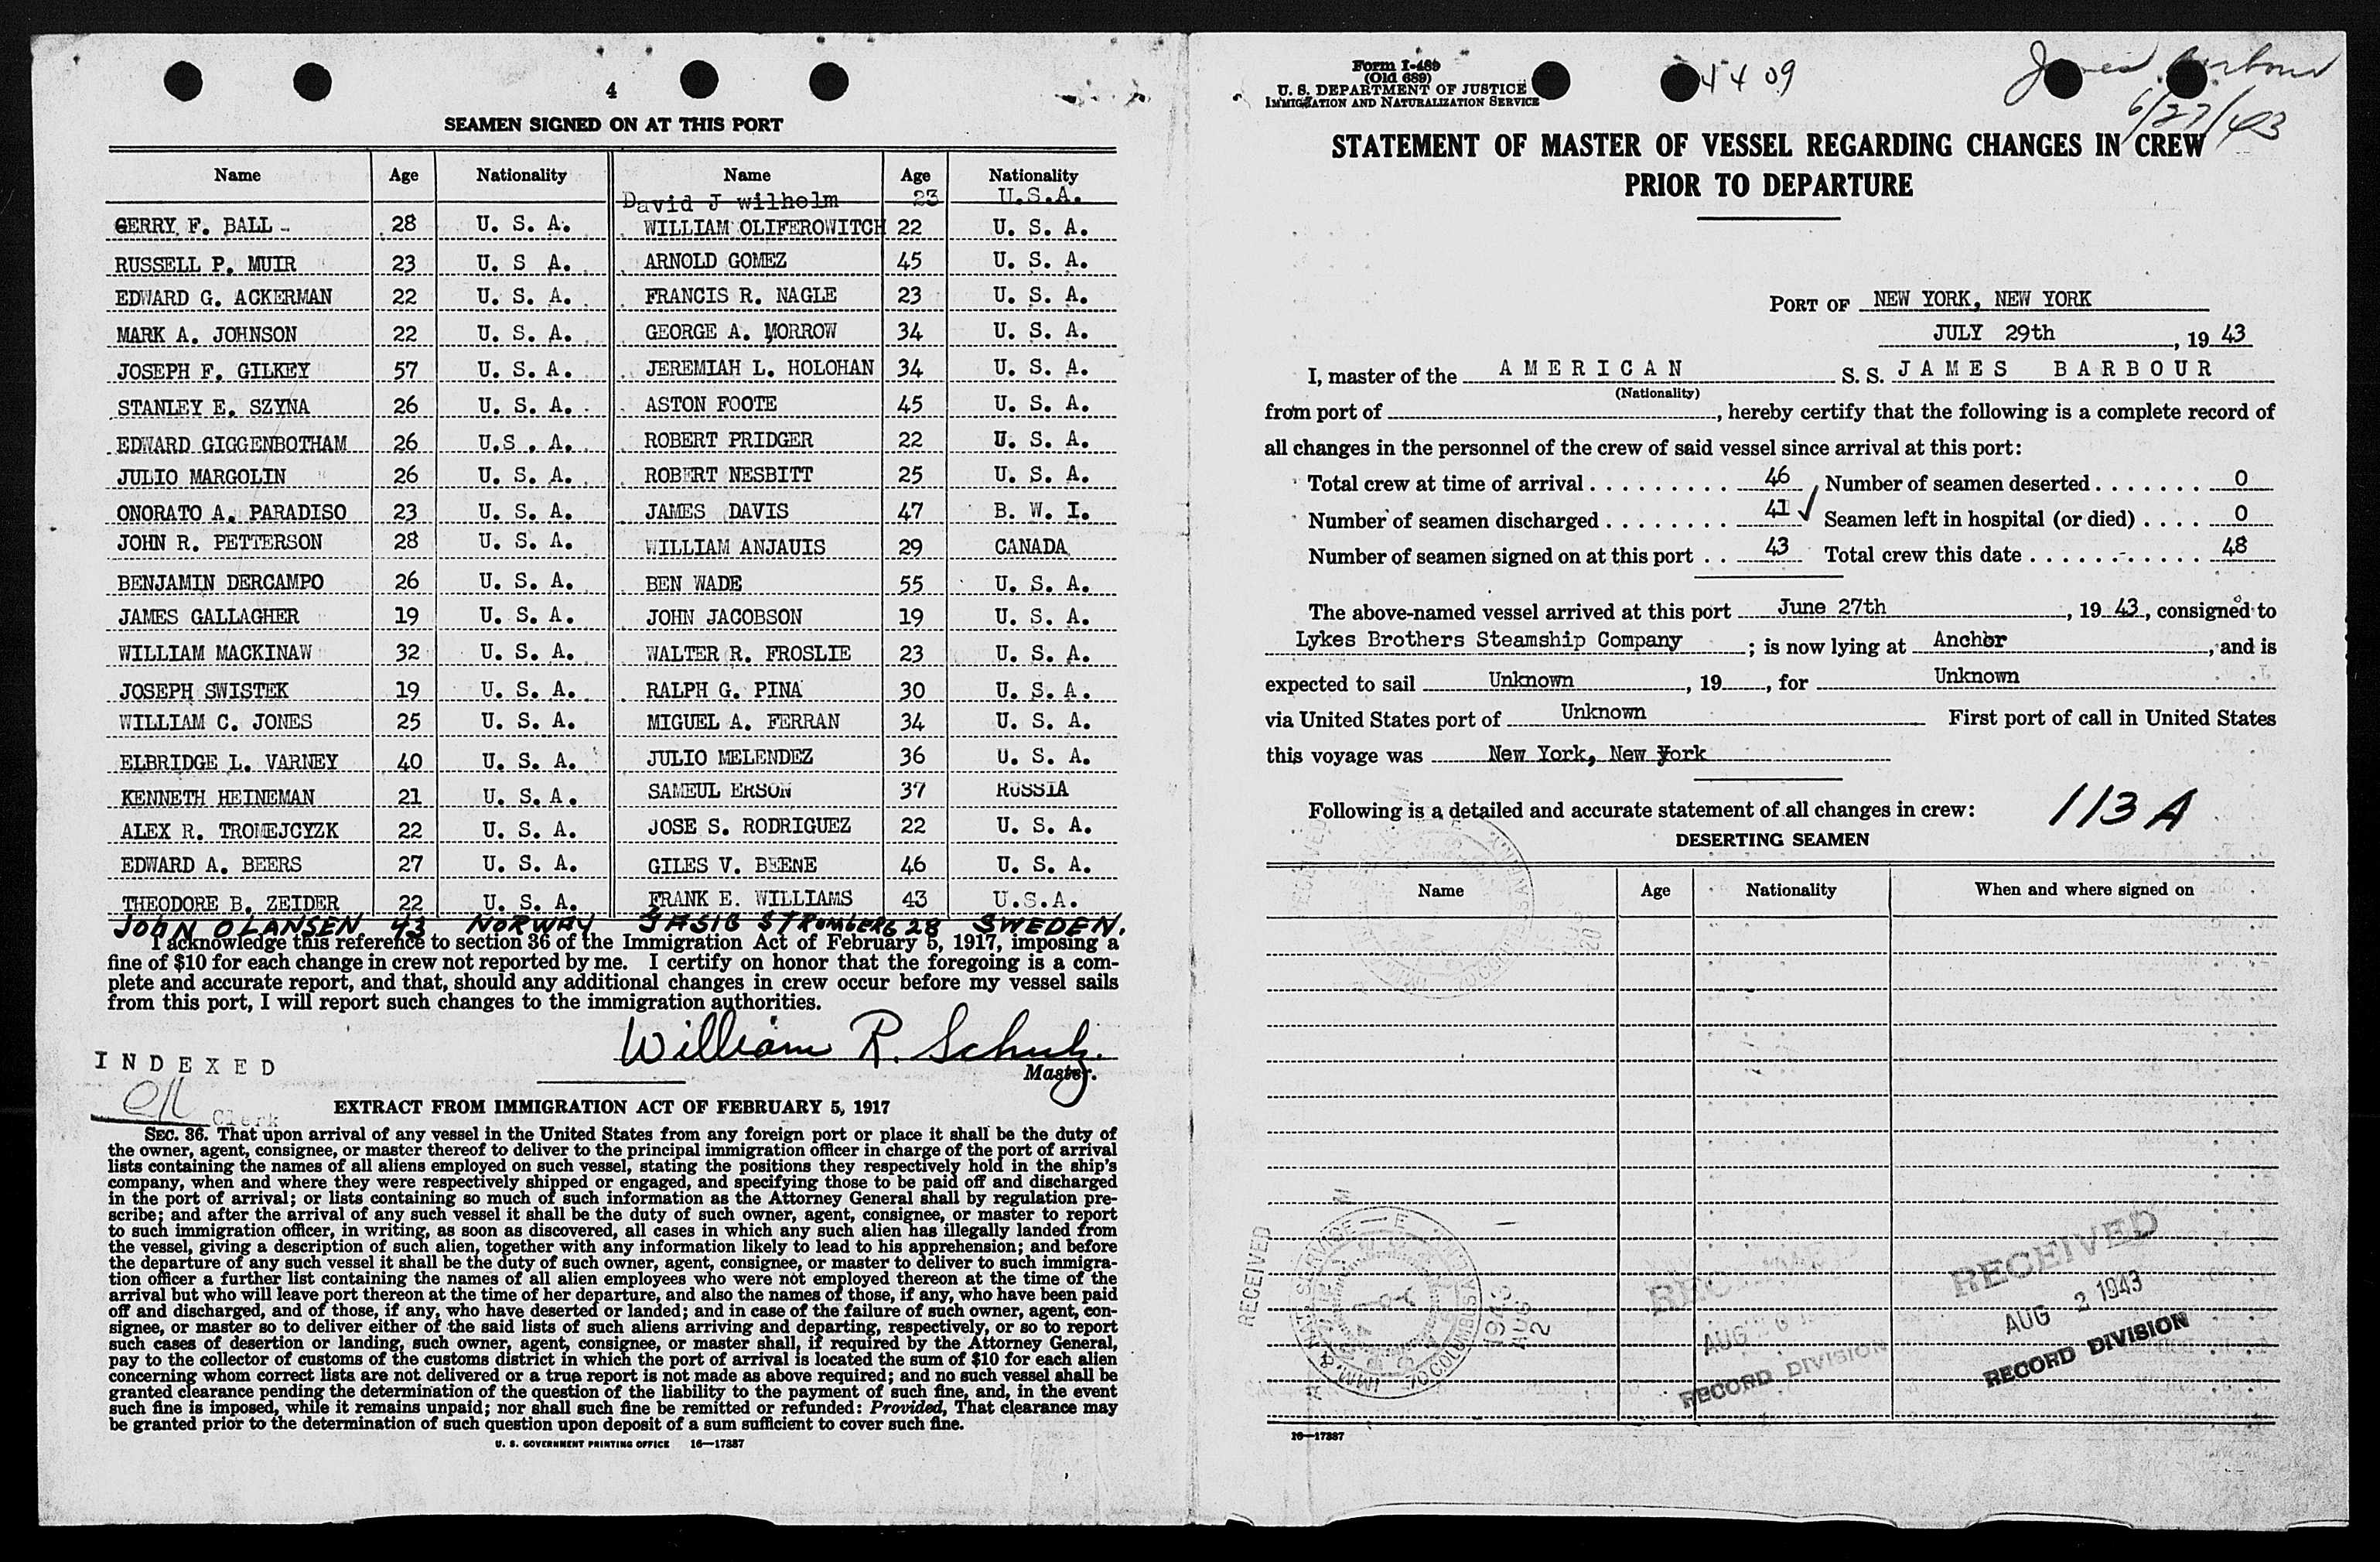 4
SEAMEN SIGNED ON AT THIS PORT
Name Age Nationality Name Age Nationality
David J wilholm 23 U.S.A.
GERRY F. BALL 28 U. S. A. WILLIAM OLIFEROWITCH 22 U. S. A.
RUSSELL P. MUIR 23 U. S A. ARNOLD GOMEZ 45 U. S. A.
EDWARD G. ACKERMAN 22 U. S. A. FRANCIS R. NAGLE 23 U. S. A.
MARK A. JOHNSON 22 U. S. A. GEORGE A. MORROW 34 U. S. A.
JOSEPH F. GILKEY 57 U. S. A. JEREMIAH L. HOLOHAN 34 U. S. A.
STANLEY E. SZYNA 26 U. S. A. ASTON FOOTE 45 U. S. A.
EDWARD GIGGENBOTHAM 26 U.S . A. ROBERT PRIDGER 22 U. S. A.
JULIO MARGOLIN 26 U. S. A. ROBERT NESBITT 25 U. S. A.
ONORATO A. PARADISO 23 U. S. A. JAMES DAVIS 47 B. W. I.
JOHN R. PETTERSON 28 U. S. A. WILLIAM ANJAUIS 29 CANADA
BENJAMIN DERCAMPO 26 U. S. A. BEN WADE 55 U. S. A.
JAMES GALLAGHER 19 U. S. A. JOHN JACOBSON 19 U. S. A.
WILLIAM MACKINAW 32 U. S. A. WALTER R. FROSLIE 23 U. S. A.
JOSEPH SWISTEK 19 U. S. A. RALPH G. PINA 30 U. S. A.
WILLIAM C. JONES 25 U. S. A. MIGUEL A. FERRAN 34 U. S. A.
ELBRIDGE L. VARNEY 40 U. S. A. JULIO MELENDEZ 36 U. S. A.
KENNETH HEINEMAN 21 U. S. A. SAMEUL ERSON 37 RUSSIA
ALEX R. TROMEJCYZK 22 U. S. A. JOSE S. RODRIGUEZ 22 U. S. A.
EDWARD A. BEERS 27 U. S. A. GILES V. BEENE 46 U. S. A.
THEODORE B. ZEIDER 22 U. S. A. FRANK E. WILLIAMS 43 U.S.A.
JOHN OLANSEN 43 NORWAY STROMBERG 28 SWEDEN.
I acknowledge this reference to section 36 of the Immigration Act of February 5, 1917, imposing a
fine of $10 for each change in crew not reported by me. I certify on honor that the foregoing is a com-
plete and accurate report, and that, should any additional changes in crew occur before my vessel sails
from this port, I will report such changes to the immigration authorities.
William R. Schulz.
Master.
INDEXED
Clerk
EXTRACT FROM IMMIGRATION ACT OF FEBRUARY 5, 1917
SEC. 36. That upon arrival of any vessel in the United States from any foreign port or place it shall be the duty of
the owner, agent, consignee, or master thereof to deliver to the principal immigration officer in charge of the port of arrival
lists containing the names of all aliens employed on such vessel, stating the positions they respectively hold in the ship's
company, when and where they were respectively shipped or engaged, and specifying those to be paid off and discharged
in the port of arrival; or lists containing so much of such information as the Attorney General shall by regulation pre-
scribe; and after the arrival of any such vessel it shall be the duty of such owner, agent, consignee, or master to report
to such immigration officer, in writing, as soon as discovered, all cases in which any such alien has illegally landed from
the vessel, giving a description of such alien, together with any information likely to lead to his apprehension; and before
the departure of any such vessel it shall be the duty of such owner, agent, consignee, or master to deliver to such immigra-
tion officer a further list containing the names of all alien employees who were not employed thereon at the time of the
arrival but who will leave port thereon at the time of her departure, and also the names of those, if any, who have been paid
off and discharged, and of those, if any, who have deserted or landed; and in case of the failure of such owner, agent, con-
signee, or master so to deliver either of the said lists of such aliens arriving and departing, respectively, or so to report
such cases of desertion or landing, such owner, agent, consignee, or master shall, if required by the Attorney General,
pay to the collector of customs of the customs district in which the port of arrival is located the sum of $10 for each alien
concerning whom correct lists are not delivered or a true report is not made as above required; and no such vessel shall be
granted clearance pending the determination of the question of the liability to the payment of such fine, and, in the event
such fine is imposed, while it remains unpaid; nor shall such fine be remitted or refunded: Provided, That clearance may
be granted prior to the determination of such question upon deposit of a sum sufficient to cover such fine.
U. S. GOVERNMENT PRINTING OFFICE 16—17387
Form I-489
(Old 689)
U. S. DEPARTMENT OF JUSTICE
IMMIGRATION AND NATURALIZATION SERVICE
5409
James Barbour
6/27/43
STATEMENT OF MASTER OF VESSEL REGARDING CHANGES IN CREW
PRIOR TO DEPARTURE
PORT OF NEW YORK, NEW YORK
JULY 29th, 19 43
I, master of the AMERICAN S. S. JAMES BARBOUR
(Nationality)
from port of , hereby certify that the following is a complete record of
all changes in the personnel of the crew of said vessel since arrival at this port:
Total crew at time of arrival 46 Number of seamen deserted 0
Number of seamen discharged 41 ✓ Seamen left in hospital (or died) 0
Number of seamen signed on at this port 43 Total crew this date 48
The above-named vessel arrived at this port June 27th, 19 43, consigned to
Lykes Brothers Steamship Company; is now lying at Anchor, and is
expected to sail Unknown, 19 , for Unknown
via United States port of Unknown First port of call in United States
this voyage was New York, New York
Following is a detailed and accurate statement of all changes in crew:
113 A
DESERTING SEAMEN
Name Age Nationality When and where signed on
RECEIVED
RECEIVED
1943 AUG 2
RECEIVED
AUG
RECORD DIVISION
RECEIVED
AUG 2 1943
RECORD DIVISION
16—17387